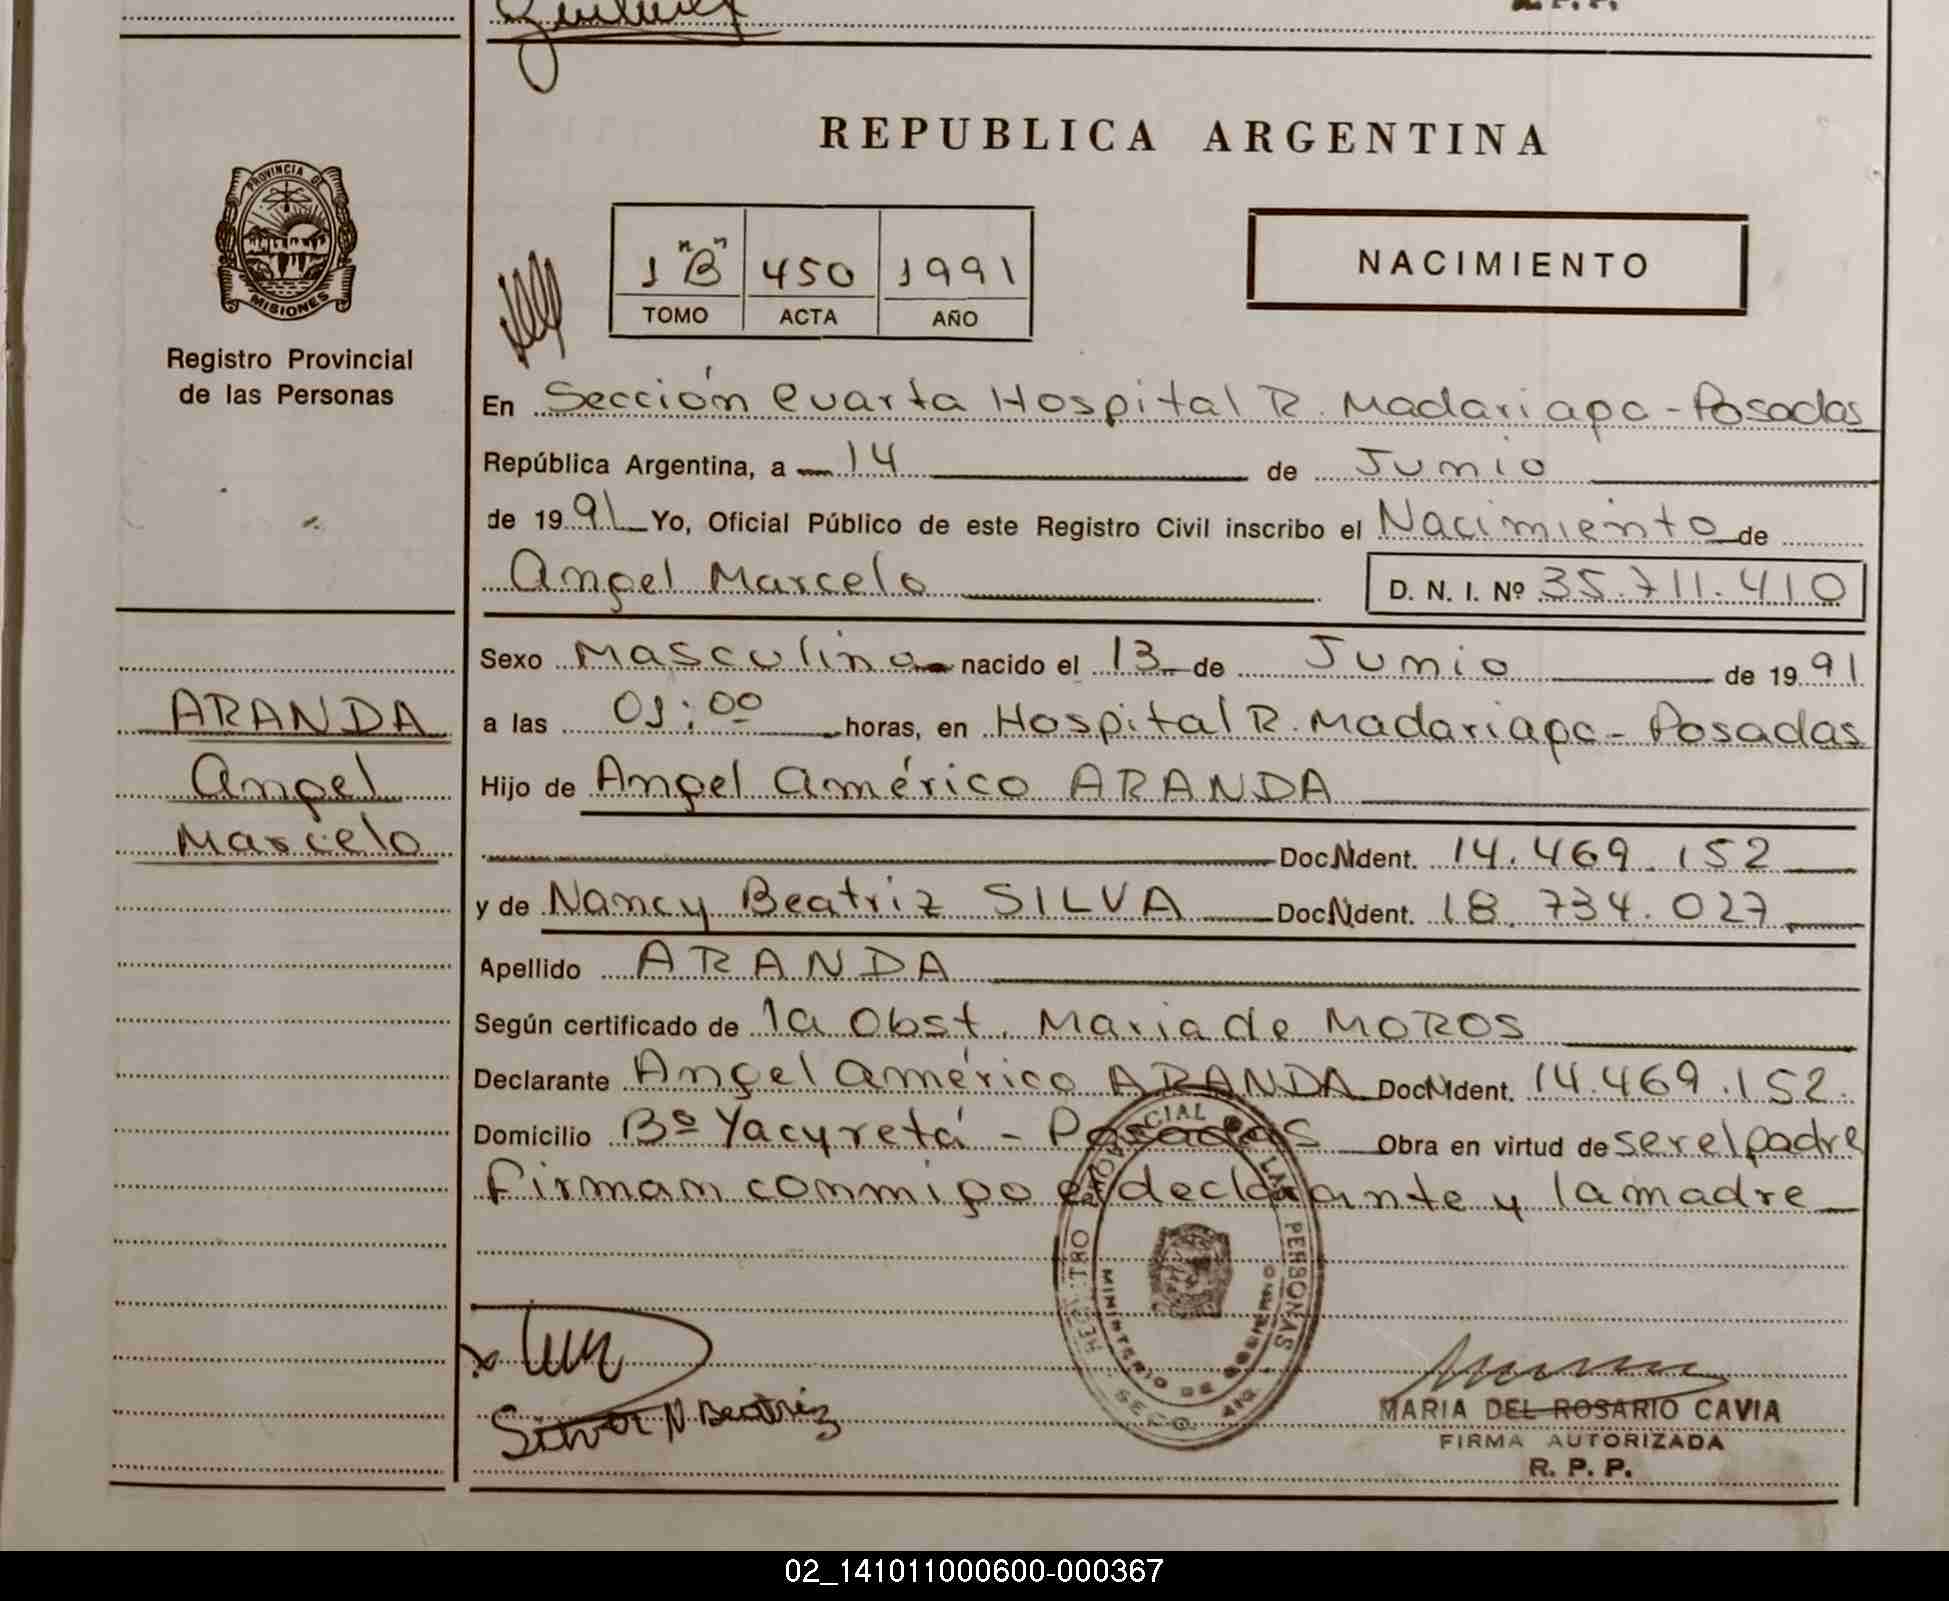 REPUBLICA ARGENTINA
PROVINCIA DE
MISIONES
Registro Provincial
de las Personas
1 "B" 450 1991
TOMO ACTA AÑO
NACIMIENTO
En Sección Cuarta Hospital R. Madariaga - Posadas
República Argentina, a 14 de Junio
de 1991 Yo, Oficial Público de este Registro Civil inscribo el Nacimiento de
Angel Marcelo D. N. I. Nº 35.711.410
Sexo Masculino nacido el 13 de Junio de 1991
a las 01:00 horas, en Hospital R. Madariaga - Posadas
Hijo de Angel Américo ARANDA
Doc.N.Ident. 14.469.152
y de Nancy Beatriz SILVA Doc.N.Ident. 18.734.027
Apellido ARANDA
Según certificado de la Obst. Maria de MOROS
Declarante Angel Américo ARANDA Doc.N.Ident. 14.469.152.
Domicilio Bº Yacyretá - Posadas Obra en virtud de ser el padre
Firman conmigo el declarante y la madre
ARANDA
Angel
Marcelo
REGISTRO PROVINCIAL DE LAS PERSONAS
MINISTERIO DE GOBIERNO
Silva N Beatriz
MARIA DEL ROSARIO CAVIA
FIRMA AUTORIZADA
R. P. P.
02_141011000600-000367